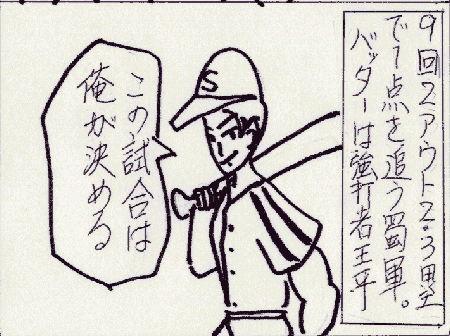 9回2アウト2・3塁
で1点を追う蜀軍。
バッターは強打者王平
この試合は
俺が決める
S